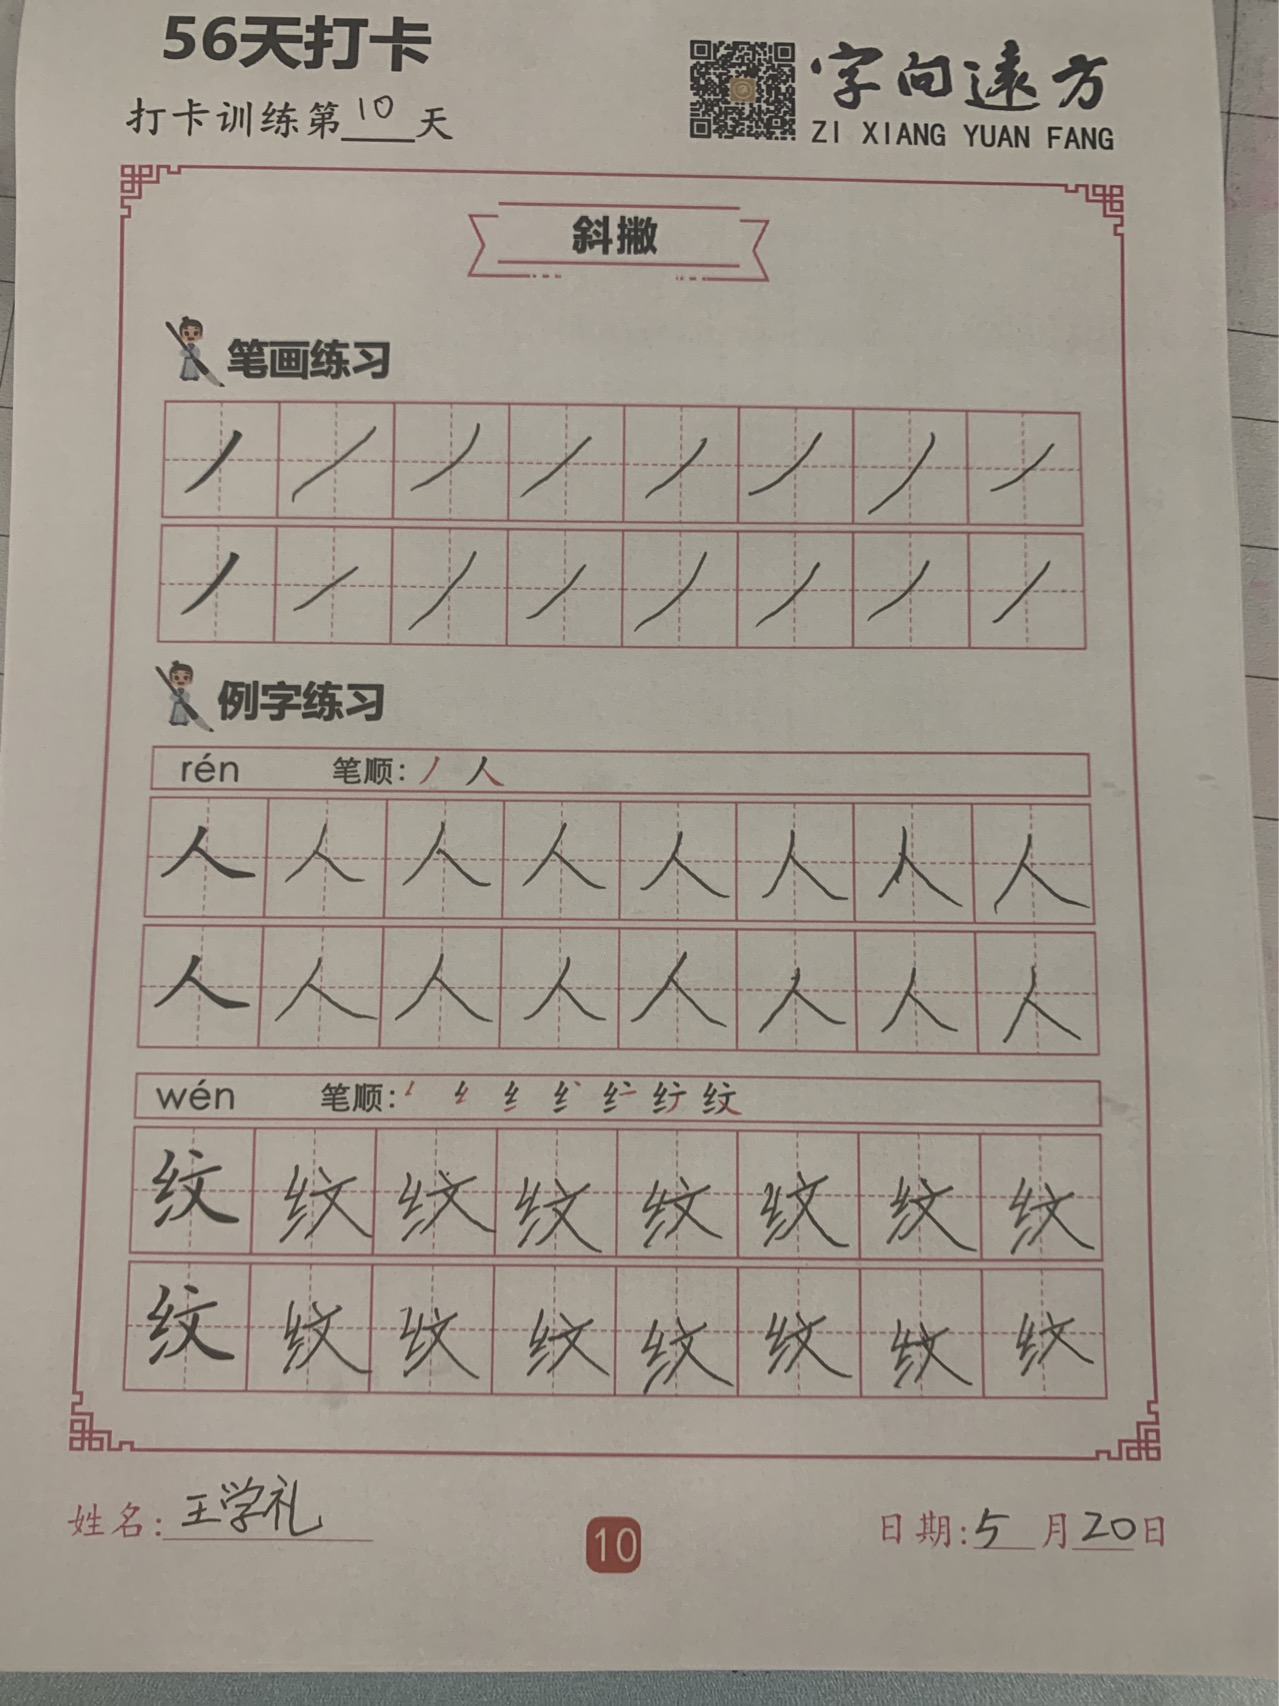 56天打卡
打卡训练第10天
字向远方
ZI XIANG YUAN FANG
斜撇
笔画练习
丿丿丿丿丿丿丿丿
丿丿丿丿丿丿丿丿
例字练习
rén 笔顺：丿 人
人人人人人人人人
人人人人人人人人
wén 笔顺：
纹纹纹纹纹纹纹纹
纹纹纹纹纹纹纹纹
姓名：王学礼
10
日期：5月20日